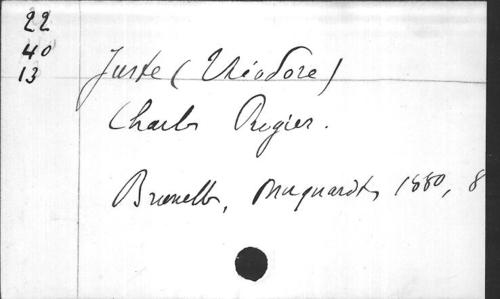 22
40
13
Juste (Théodore)
Charles Rogier.
Bruxelles, Muquardt, 1880, 8